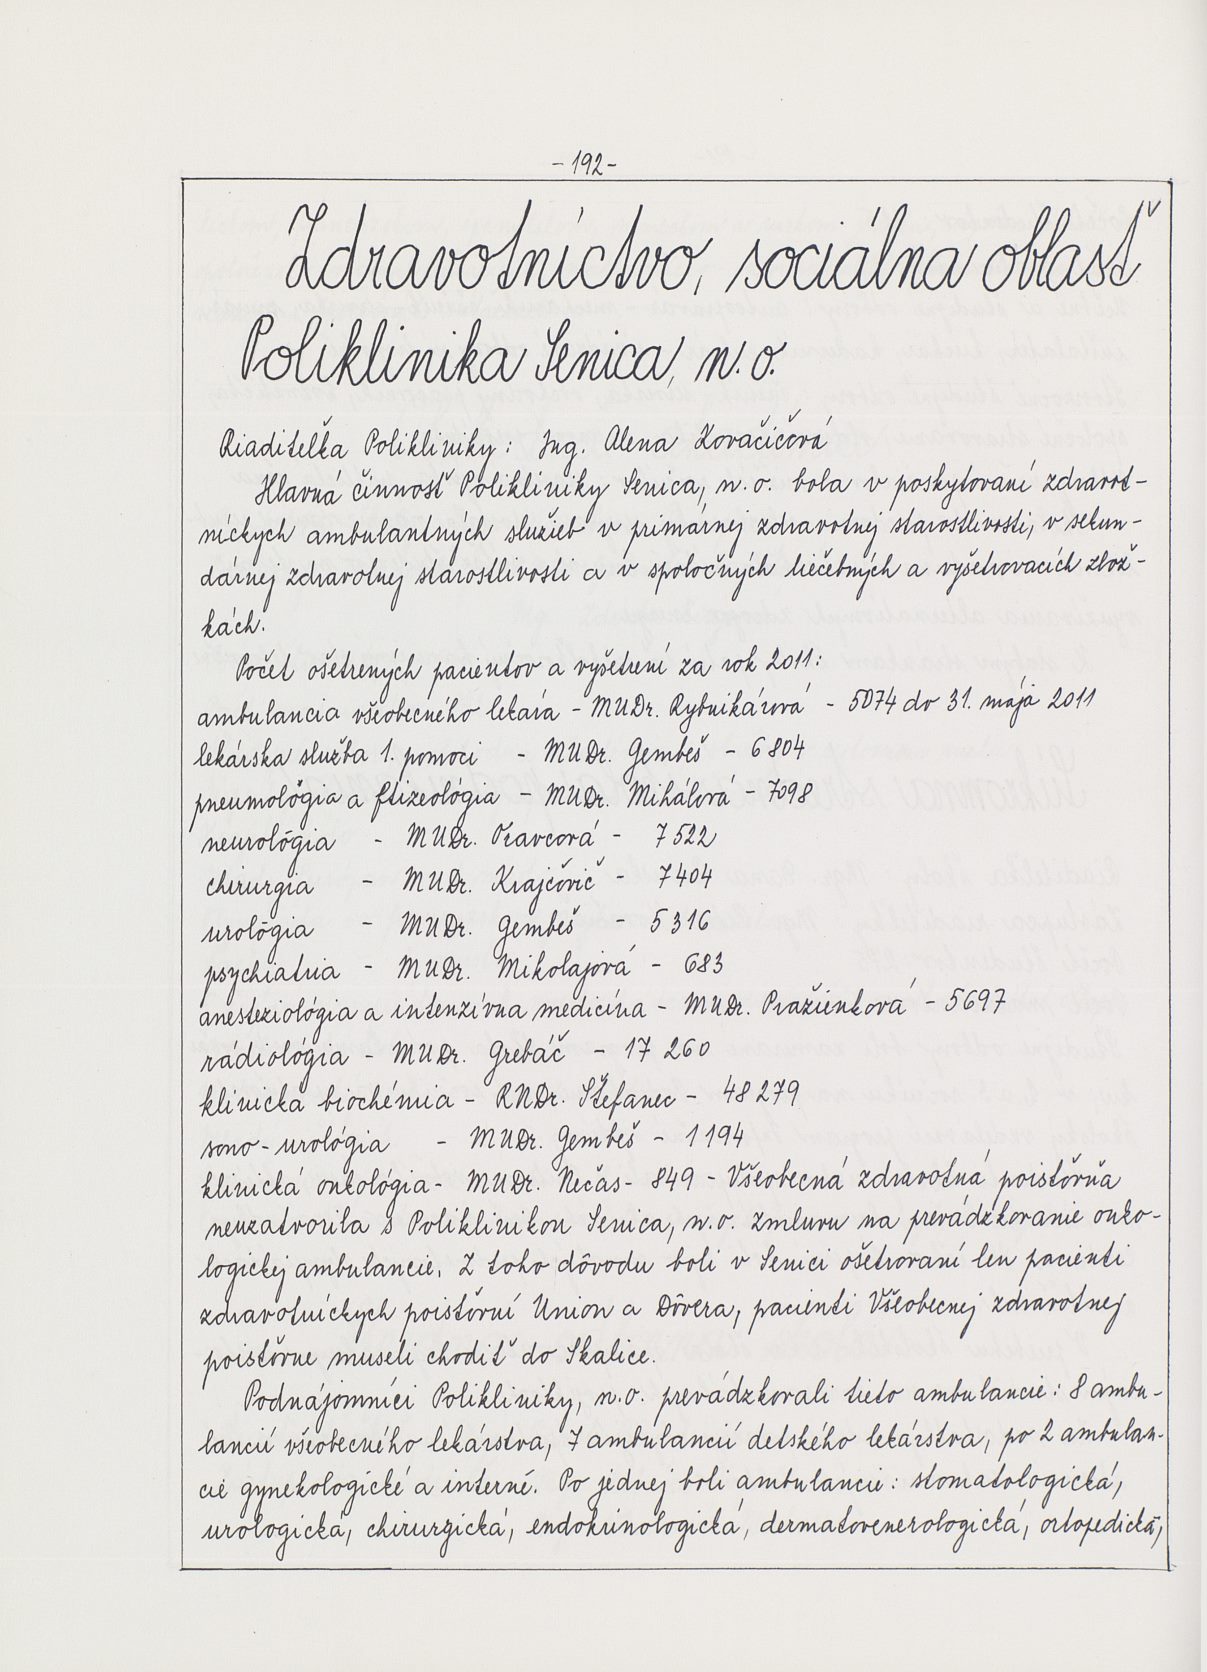 - 192 -
Zdravotníctvo, sociálna oblasť
Poliklinika Senica, n. o.
Riaditeľka Polikliniky: Ing. Alena Kovačičová
Hlavná činnosť Polikliniky Senica, n. o. bola v poskytovaní zdravot-
níckych ambulantných služieb v primárnej zdravotnej starostlivosti, v sekun-
dárnej zdravotnej starostlivosti a v spoločných liečebných a vyšetrovacích zlož-
kách.
Počet ošetrených pacientov a vyšetrení za rok 2011:
ambulancia všeobecného lekára - MUDr. Rybnikárová - 5074 do 31. mája 2011
lekárska služba 1. pomoci - MUDr. Gembeš - 6804
pneumológia a ftizeológia - MUDr. Mihálová - 7098
neurológia - MUDr. Kravcová - 7522
chirurgia - MUDr. Krajčovič - 7404
urológia - MUDr. Gembeš - 5316
psychiatria - MUDr. Mikolajová - 683
anesteziológia a intenzívna medicína - MUDr. Pražienková - 5697
rádiológia - MUDr. Grebáč - 17 260
klinická biochémia - RNDr. Štefanec - 48 279
sono-urológia - MUDr. Gembeš - 1194
klinická onkológia - MUDr. Nečas - 849 - Všeobecná zdravotná poisťovňa
neuzatvorila s Poliklinikou Senica, n. o. zmluvu na prevádzkovanie onko-
logickej ambulancie. Z toho dôvodu boli v Senici ošetrovaní len pacienti
zdravotníckych poisťovní Union a Dôvera, pacienti Všeobecnej zdravotnej
poisťovne museli chodiť do Skalice.
Podnájomníci Polikliniky, n. o. prevádzkovali tieto ambulancie: 8 ambu-
lancií všeobecného lekárstva, 7 ambulancií detského lekárstva, po 2 ambulan-
cie gynekologické a interné. Po jednej boli ambulancie: stomatologická,
urologická, chirurgická, endokrinologická, dermatovenerologická, ortopedická,